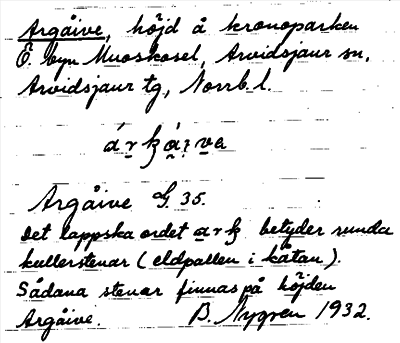 Argåive, höjd å kronoparken
Ö. byn Muoskosel, Arvidsjaur sn,
Arvidsjaur tg, Norrb. l.
Argåive G. 35.
Det lappska ordet arƙ betyder runda
kullerstenar (eldpallen i kåtan).
Sådana stenar finnas på höjden
Argåive. B. Nygren 1932.